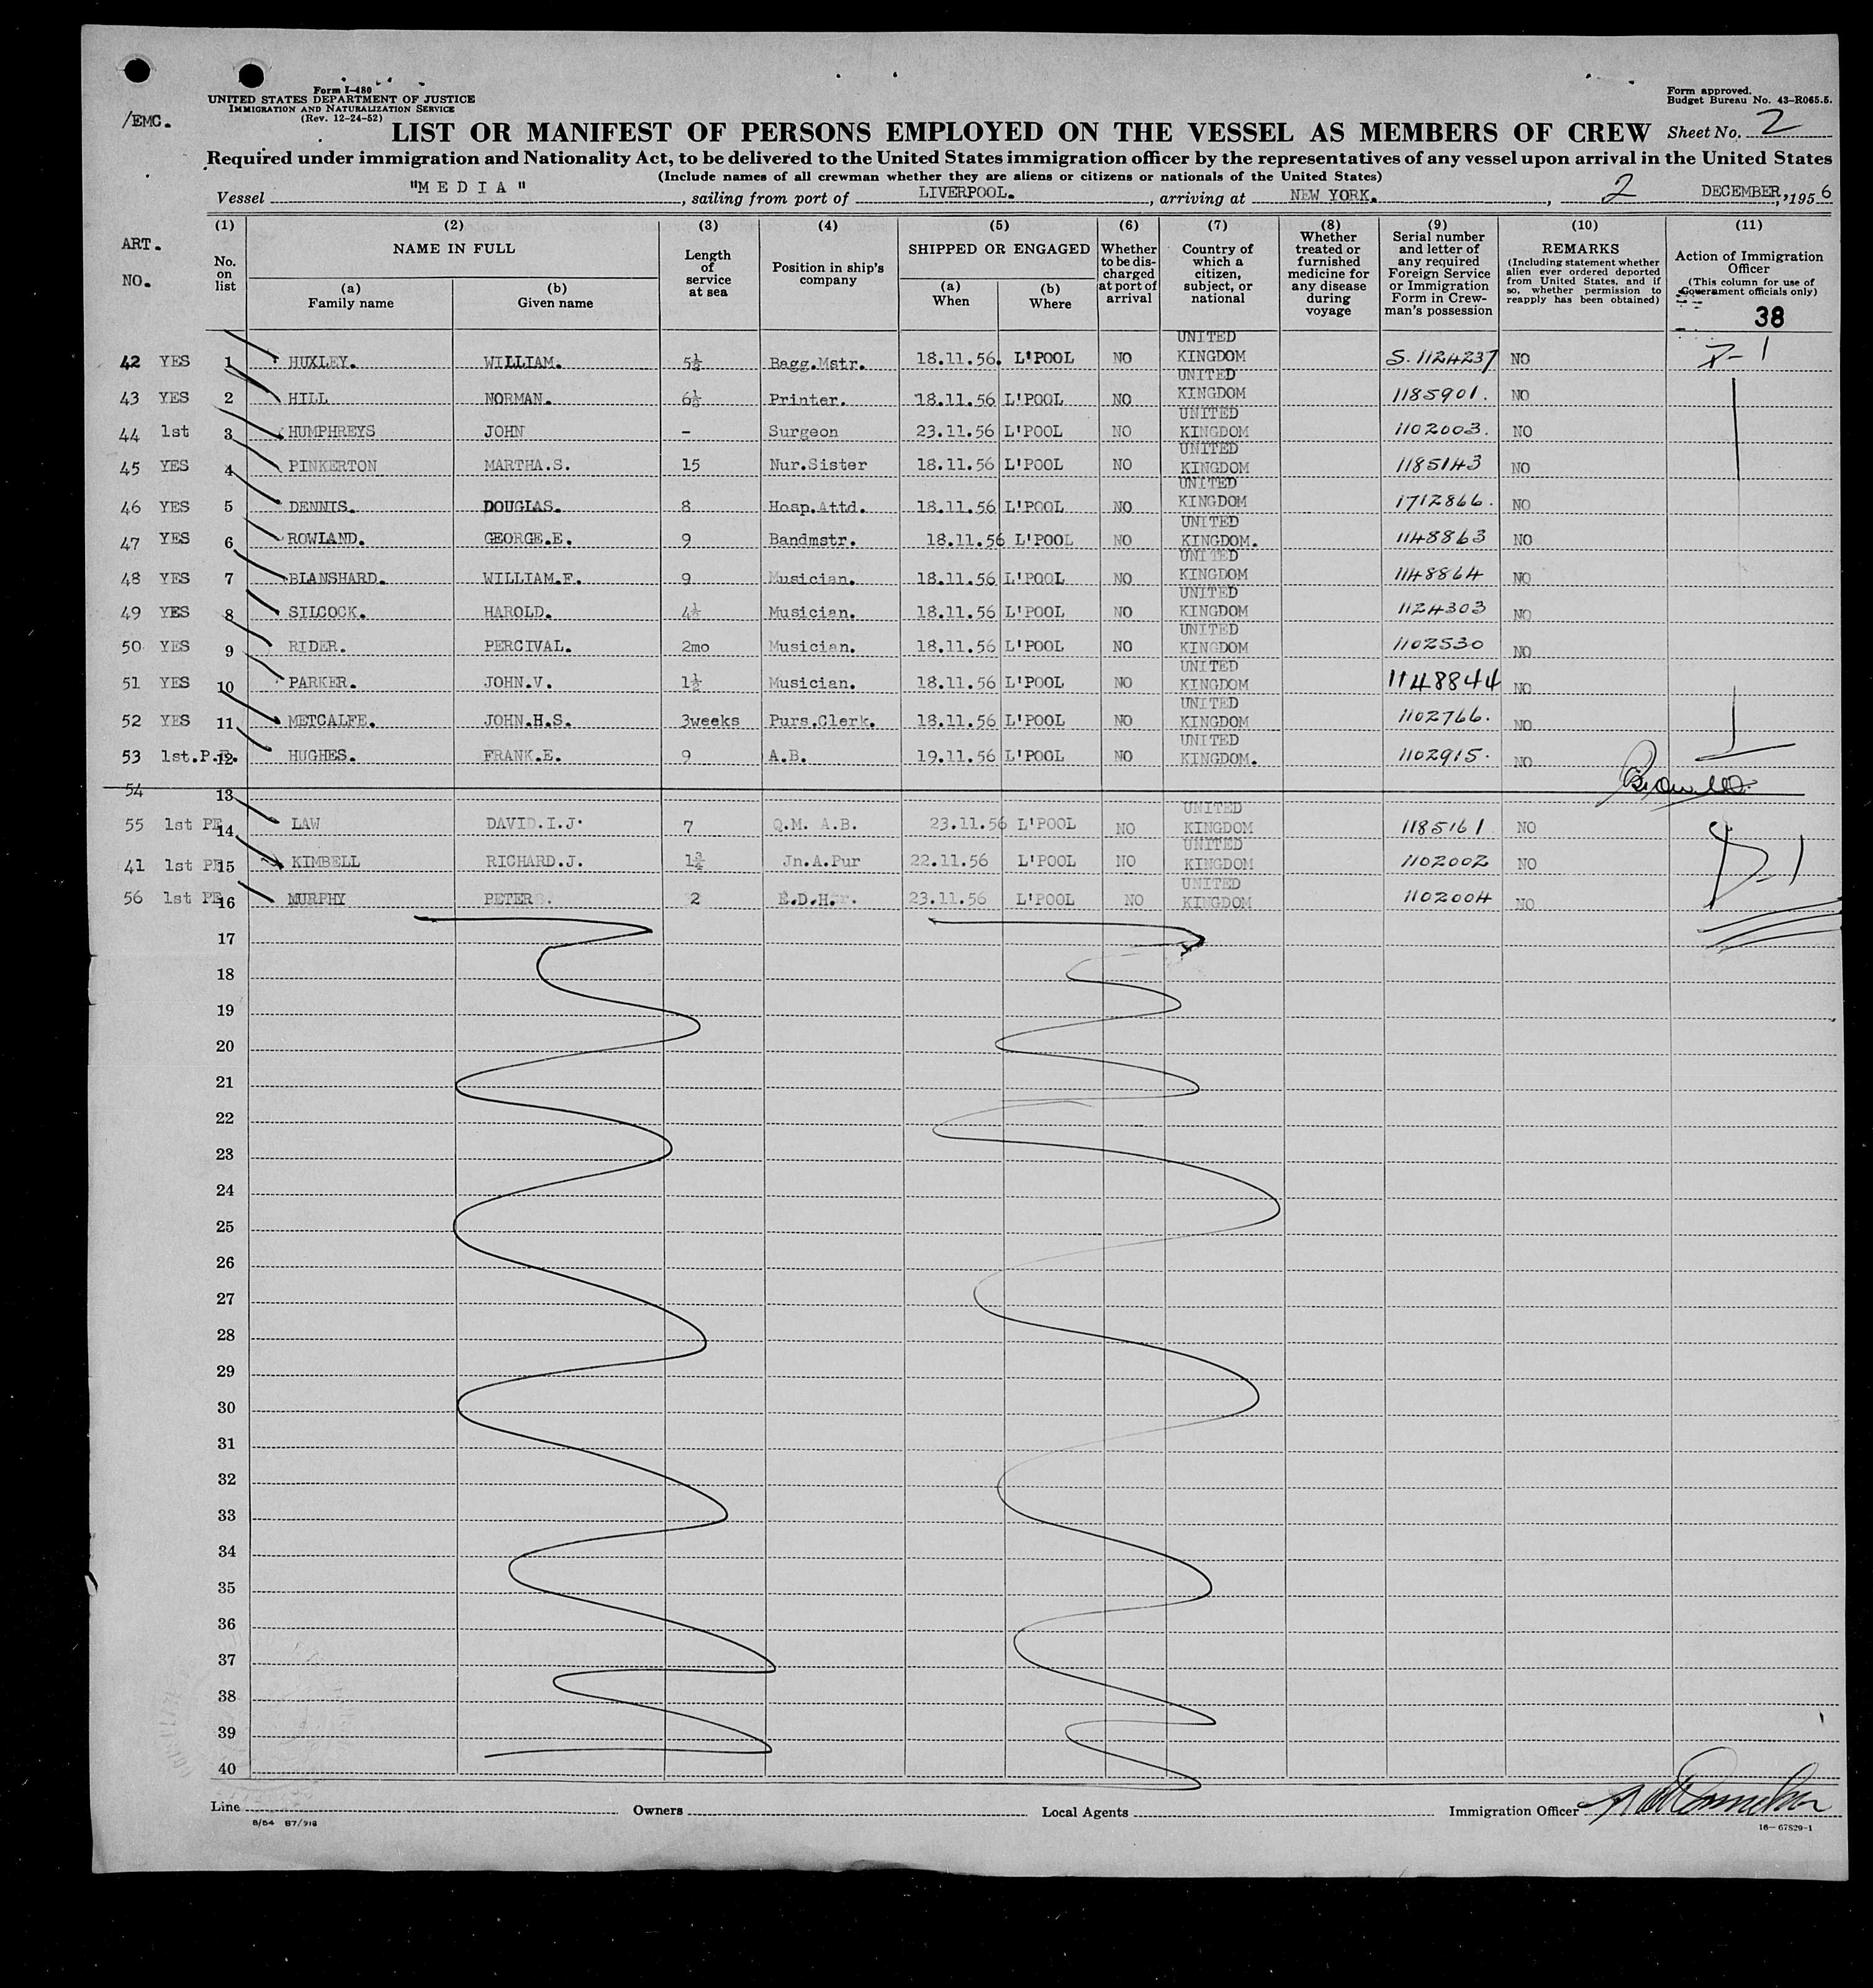 Form I-480
UNITED STATES DEPARTMENT OF JUSTICE
IMMIGRATION AND NATURALIZATION SERVICE
(Rev. 12-24-52)
Form approved.
Budget Bureau No. 43-R065.5.
/EMC.
LIST OR MANIFEST OF PERSONS EMPLOYED ON THE VESSEL AS MEMBERS OF CREW Sheet No. 2
Required under immigration and Nationality Act, to be delivered to the United States immigration officer by the representatives of any vessel upon arrival in the United States
(Include names of all crewman whether they are aliens or citizens or nationals of the United States)
Vessel "MEDIA", sailing from port of LIVERPOOL., arriving at NEW YORK., 2 DECEMBER, 1956
ART. NO.
(1) No. on list
(2) NAME IN FULL
(a) Family name
(b) Given name
(3) Length of service at sea
(4) Position in ship's company
(5) SHIPPED OR ENGAGED
(a) When
(b) Where
(6) Whether to be discharged at port of arrival
(7) Country of which a citizen, subject, or national
(8) Whether treated or furnished medicine for any disease during voyage
(9) Serial number and letter of any required Foreign Service or Immigration Form in Crewman's possession
(10) REMARKS (Including statement whether alien ever ordered deported from United States, and if so, whether permission to reapply has been obtained)
(11) Action of Immigration Officer (This column for use of Government officials only)
38
42 YES 1 HUXLEY. WILLIAM. 5½ Bagg.Mstr. 18.11.56. L'POOL NO UNITED KINGDOM S. 1124237 NO
43 YES 2 HILL NORMAN. 6½ Printer. 18.11.56 L'POOL NO UNITED KINGDOM 1185901. NO
44 1st 3 HUMPHREYS JOHN - Surgeon 23.11.56 L'POOL NO UNITED KINGDOM 1102003. NO
45 YES 4 PINKERTON MARTHA.S. 15 Nur.Sister 18.11.56 L'POOL NO UNITED KINGDOM 1185143 NO
46 YES 5 DENNIS. DOUGLAS. 8 Hosp.Attd. 18.11.56 L'POOL NO UNITED KINGDOM 1712866. NO
47 YES 6 ROWLAND. GEORGE.E. 9 Bandmstr. 18.11.56 L'POOL NO UNITED KINGDOM. 1148863 NO
48 YES 7 BLANSHARD. WILLIAM.F. 9 Musician. 18.11.56 L'POOL NO UNITED KINGDOM 1148864 NO
49 YES 8 SILCOCK. HAROLD. 4½ Musician. 18.11.56 L'POOL NO UNITED KINGDOM 1124303 NO
50 YES 9 RIDER. PERCIVAL. 2mo Musician. 18.11.56 L'POOL NO UNITED KINGDOM 1102530 NO
51 YES 10 PARKER. JOHN.V. 1½ Musician. 18.11.56 L'POOL NO UNITED KINGDOM 1148844 NO
52 YES 11 METCALFE. JOHN.H.S. 3weeks Purs.Clerk. 18.11.56 L'POOL NO UNITED KINGDOM 1102766. NO
53 1st.P.E. 12 HUGHES. FRANK.E. 9 A.B. 19.11.56 L'POOL NO UNITED KINGDOM. 1102915. NO
54 13
55 1st PE 14 LAW DAVID.I.J. 7 Q.M. A.B. 23.11.56 L'POOL NO UNITED KINGDOM 1185161 NO
41 1st PE 15 KIMBELL RICHARD.J. 1¾ Jn.A.Pur 22.11.56 L'POOL NO UNITED KINGDOM 1102002 NO
56 1st PE 16 MURPHY PETER 2 E.D.H. 23.11.56 L'POOL NO UNITED KINGDOM 1102004 NO
17
18
19
20
21
22
23
24
25
26
27
28
29
30
31
32
33
34
35
36
37
38
39
40
Line Owners Local Agents Immigration Officer
16—67829-1